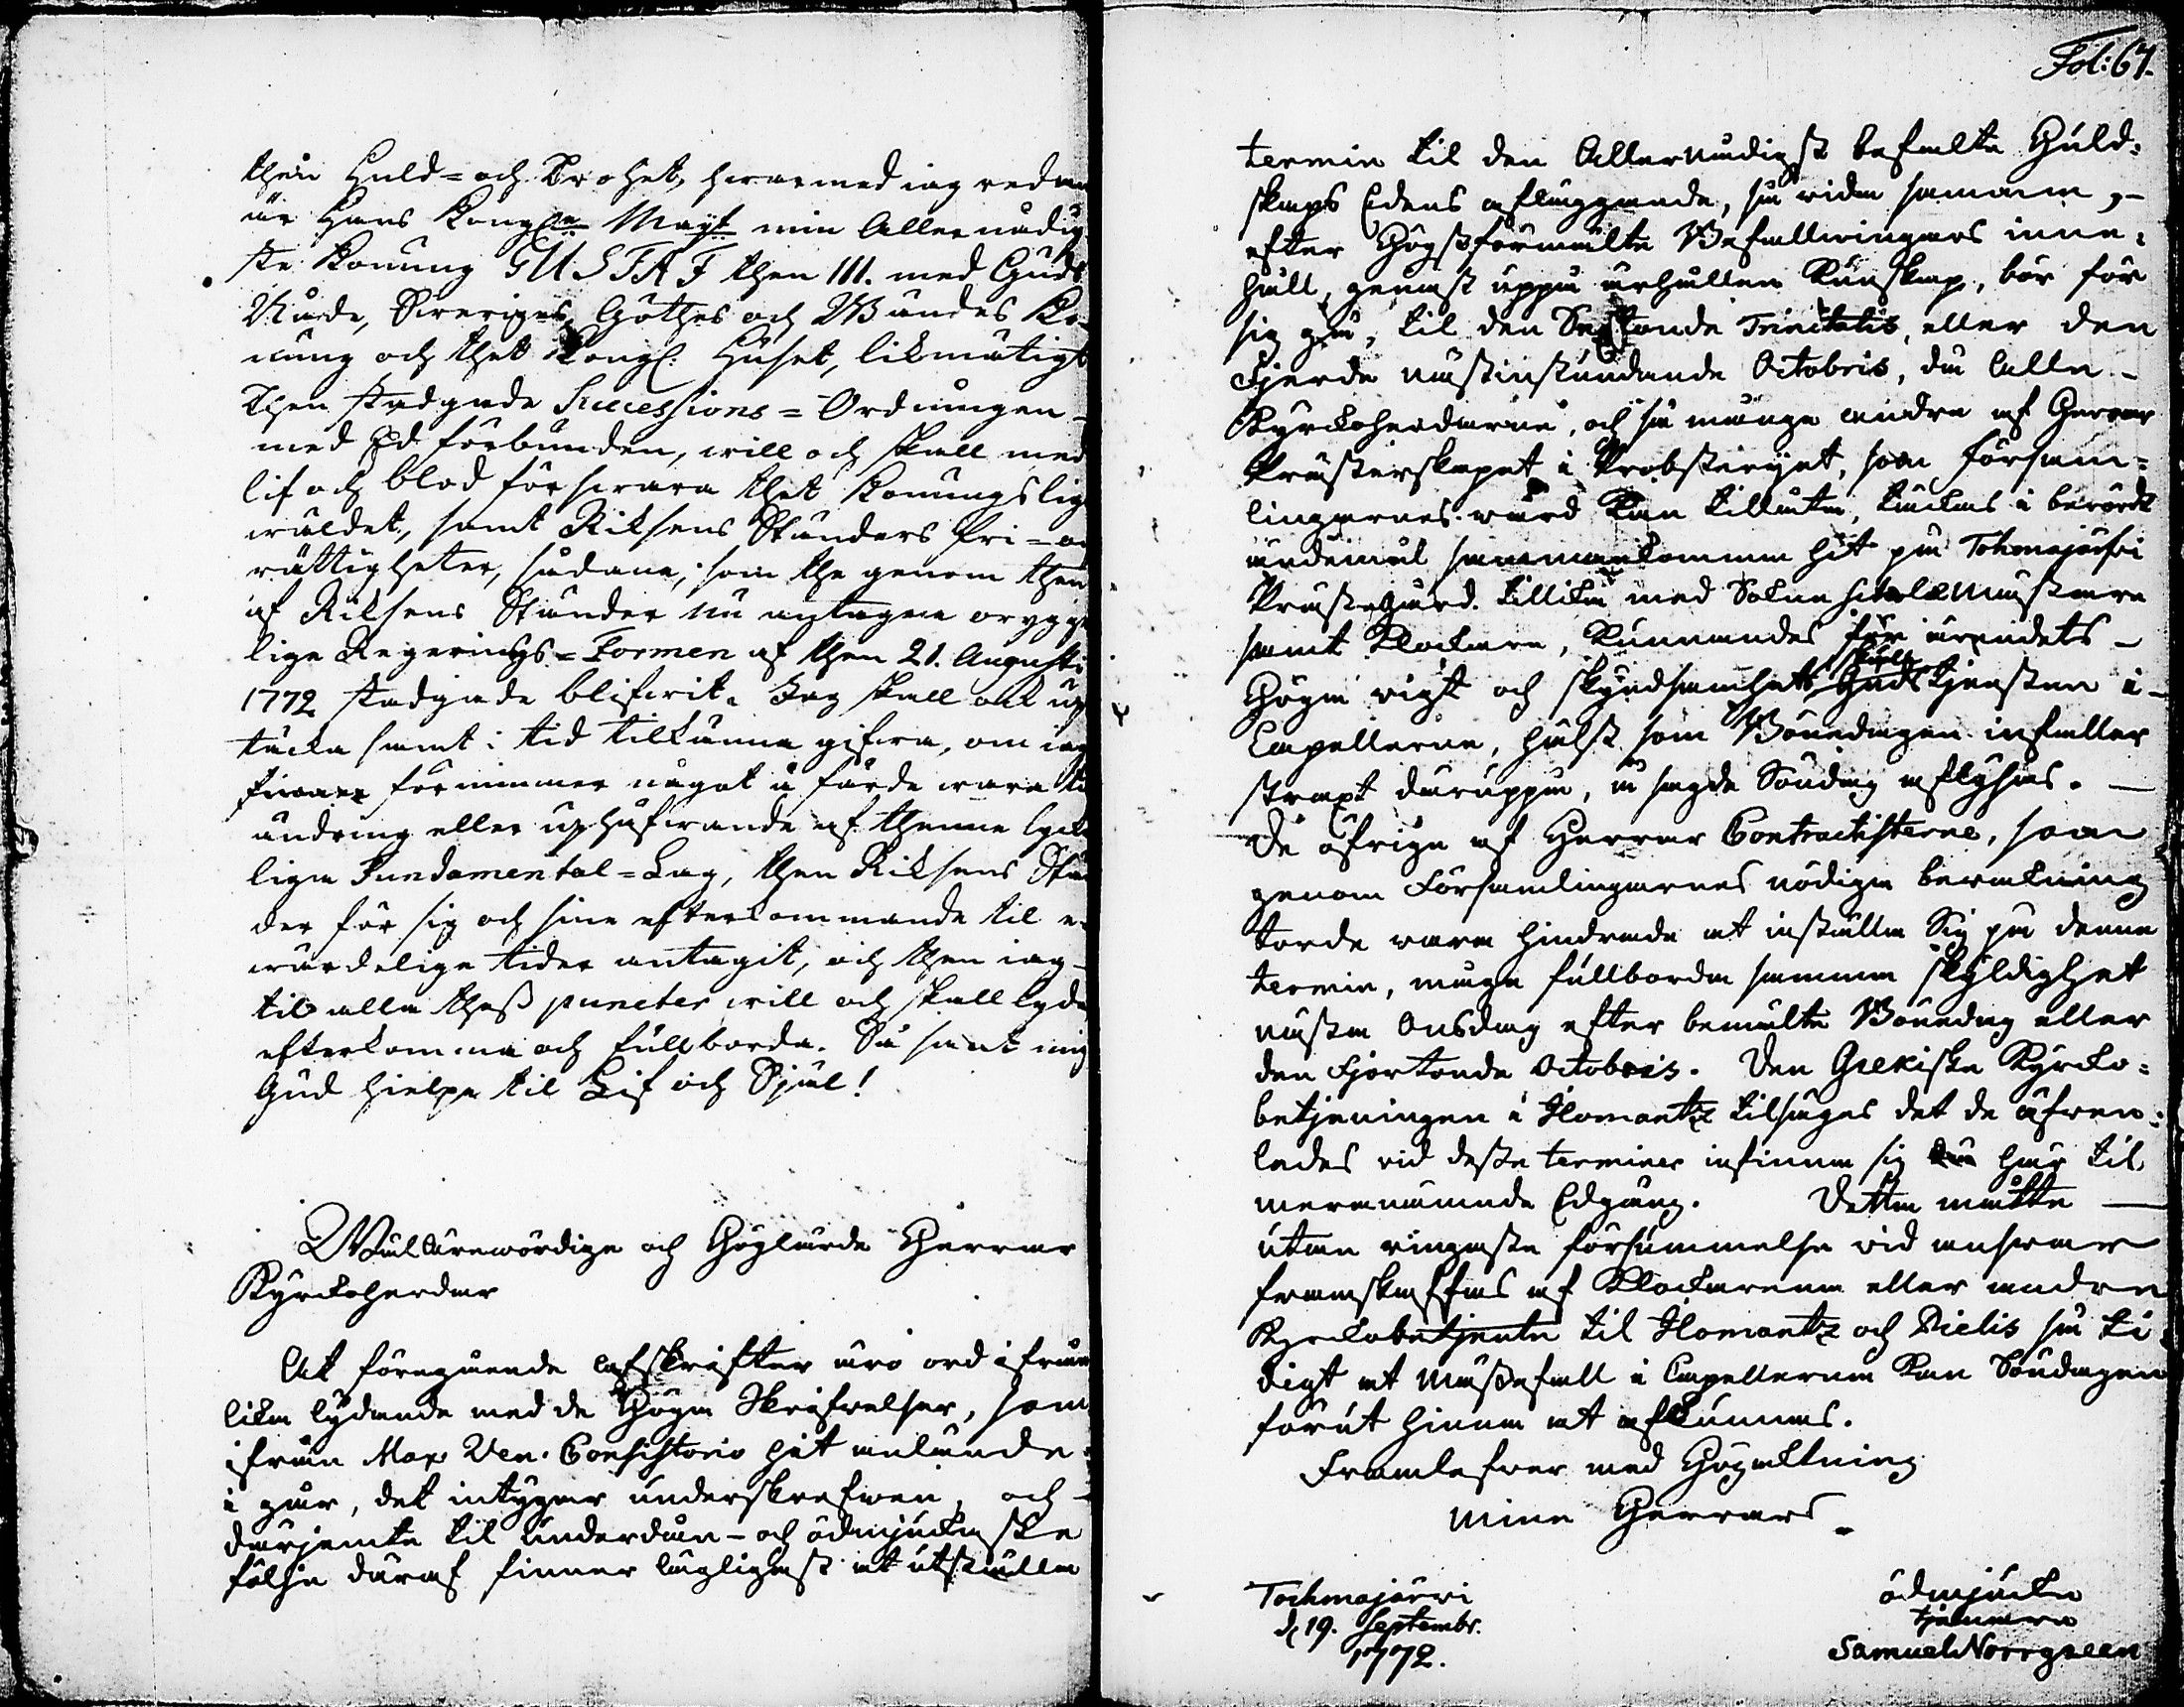 then Huld= och Trohet, hwarmed iag redan
är Hans Kongl:e Mayt min Allernådig
ste Konung GUSTAF then III. med Guds
Nåde, Sweriges, Göthes och Wändes Ko-
nung och thet Kongl. Huset, likmätigt
then stadgade Successions=Ordningen
med Ed förbunden, will och skall med
lif och blod förswara thet Konungslige
wäldet, samt Riksens Ständers fri= och
rättigheter, sådane, som the genom then
af Riksens Ständer nu antagne orygge
lige Regerings=Formen af then 21. Augusti
1772 stadgade blifwit. Jag skall ock up
täcka samt i tid tilkänna gifwa, om iag
förnimmer något å färde wara til
ändring eller uphäfwande af thenne lycke
liga Fundamental=Lag, then Riksens Stän
der för sig och sine efterkommande til e-
wärdelige tider antagit, och then iag
til alla theß puncter will och skall lyda
efterkomma och fullborda. Så sant mig
Gud hielpe til Lif och Själ!
Wäl Ärewördige och Höglärde Herrar
Kyrckoherdar
At föregående afskrifter äro ord ifrån
lika lydande med de Höga Skrifwelser, som
ifrån Max Ven. Consistorio hit anlände
i går, det intygar underskrefwen, och
därjemte til underdån- och ödmjuka ske
följe däraf finner lägligast at utställa
Fol: 67.
termin til den Allernådigst befalte Huld-
skaps Edens afläggande, så widt samma,
efter Högstförmälte Befallningars inne-
håll, genast uppå ärhållen Kunskap, bör för
sig gå, til den Sextonde Trinitatis, eller den
Fjerde nästinstundande Octobris, då alla
Kyrckoherdarne, och så månge andre af Herrar
Prästerskapet i Probsteriyet, som försam-
lingarnes wård kan tillåta, täckas i berördt
ärdemål sammankomma hit på Tohmajärfwi
Prästegård. tillika med Sokne Scholæ Mästare
samt Klockare, kunnandes för ärendets
Höga wigt och skyndsamhets skull Gudstjensten i
Capellerne, hälst som Bönedagen infaller
strapt däruppå, å sagde Söndag aflysas.
De öfrige af Herrar Contractisterne, som
genom Församlingarnes nödige bewakning
torde wara hindrade at inställa Sig på denne
termin, måga fullborda samma skyldighet
nästa Onsdag efter bemälte Bönedag eller
den Fjortonde Octobris. Den Grekiska Kyrcko-
betjeningen i Ilomantz tilsäges det de äfwen-
ledes wid deße terminer infinna sig här til
meranämde Edgång. Detta måtte
utan ringaste försummelse wid answar
framskaffas af Klockarena eller andre
Kyrckobetjente til Ilomantz och Pielis så ti
digt at Mäßefall i Capellerna kan Söndagen
förut hinna at afkunnas.
Framlefwer med Högaktning
mine Herrars
Tochmajärwi
d 19. Septembr.
1772.
ödmjuka
tjenare
Samuel Norrgreen